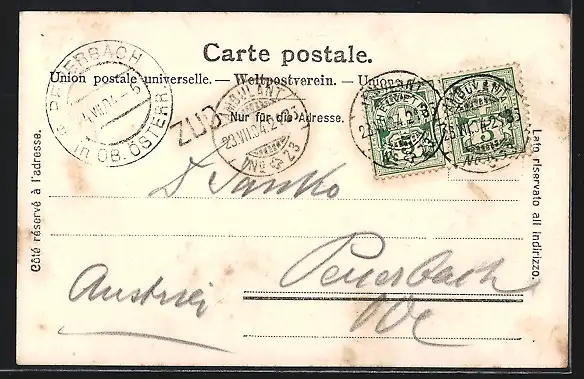 Carte postale.
Union postale universelle. — Weltpostverein. — Union
Nur für die Adresse.
Côté réservé à l'adresse.
Lato riservato all indirizzo.
PEUERBACH
in OB. ÖSTERR.
AMBULANT
23.VII.04.
No 23
AMBULANT
No 23
D. Sanko
Peuerbach
Austria